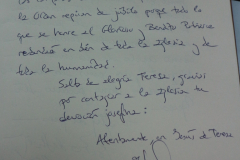 la Gran región de júbilo porque todo lo
que se haree al Glorioso y Bendito Patriarca
redundará en bien de toda la Iglesia y de
toda la humanidad.
Salto de alegría Teresa, gracias
por contagiar a la Iglesia tu
devoción josefina:
Atentamente en Jesús de Teresa